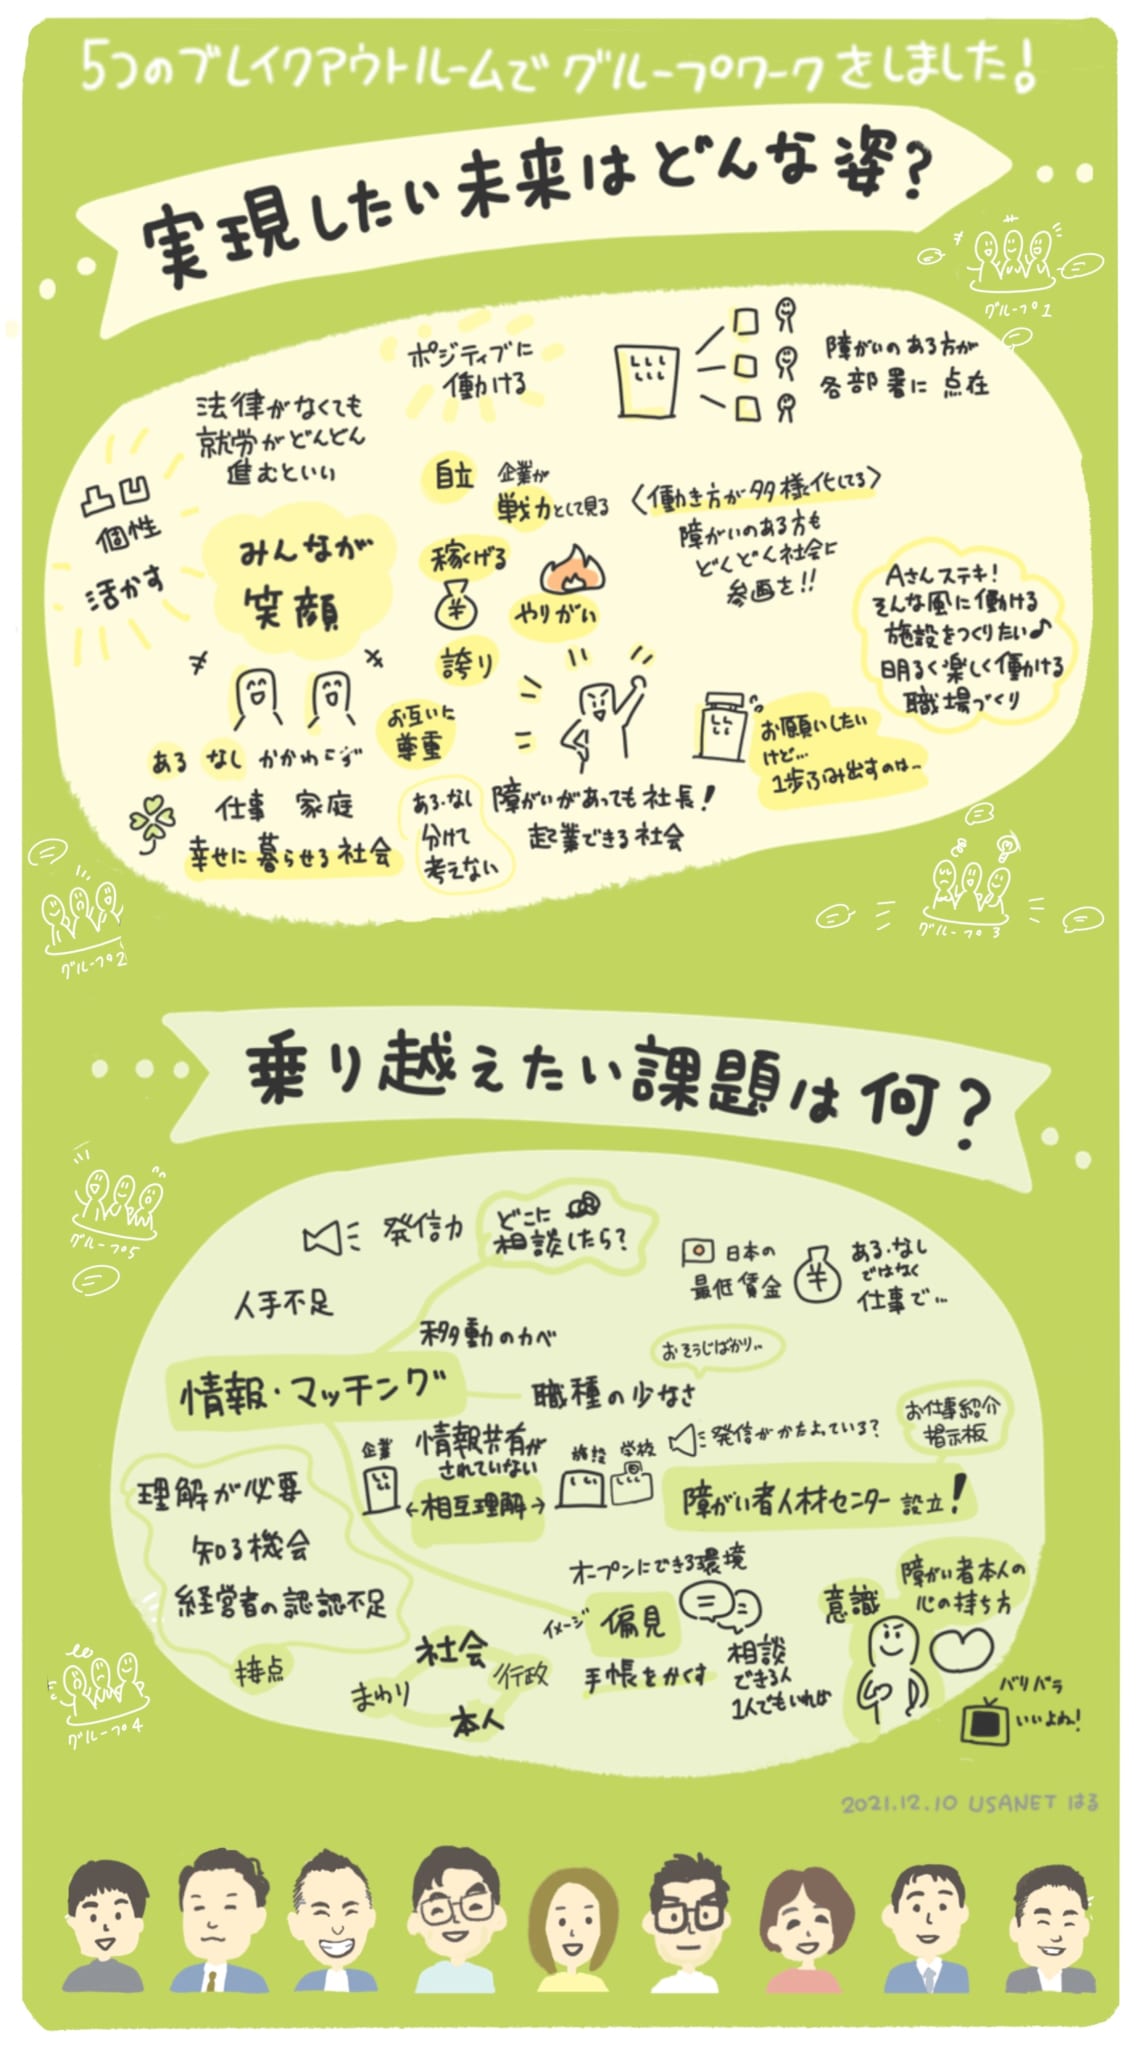 5つのブレイクアウトルームでグループワークをしました!
実現したい未来はどんな姿?
グループ1
ポジティブに
働ける
障がいのある方が
各部署に点在
法律がなくても
就労がどんどん
進むといい
凸凹
個性
活かす
自立
企業が
戦力として見る
〈働き方が多様化してる〉
障がいのある方も
どくどく社会に
参画を!!
みんなが
笑顔
稼くげる
¥
やりがい
誇り
Aさんステキ!
そんな風に働ける
施設をつくりたい♪
明るく楽しく働ける
職場づくり
お互いに
尊重
お願いしたい
けど...
1歩ふみ出すのは..
ある なし かかわらず
仕事 家庭
幸せに暮らせる社会
ある・なし
分けて
考えない
障がいがあっても社長!
起業できる社会
グループ2
グループ3
乗り越えたい課題は何?
グループ5
発信力
どこに
相談したら?
日本の
最低賃金
¥
ある・なし
ではなく
仕事で...
人手不足
移動のカベ
おそうじばかり..
情報・マッチング
職種の少なさ
お仕事紹介
掲示板
企業
情報共有が
されていない
←相互理解→
施設
学校
発信がかたよっている?
障がい者人材センター 設立!
理解が必要
知る機会
経営者の認認不足
接点
オープンにできる環境
イメージ
偏見
手帳をかくす
相談
できる人
1人でもいれば
意識
障がい者本人の
心の持ち方
社会
行政
まわり
本人
バリバラ
いいよね!
グループ4
2021.12.10 USANET はる